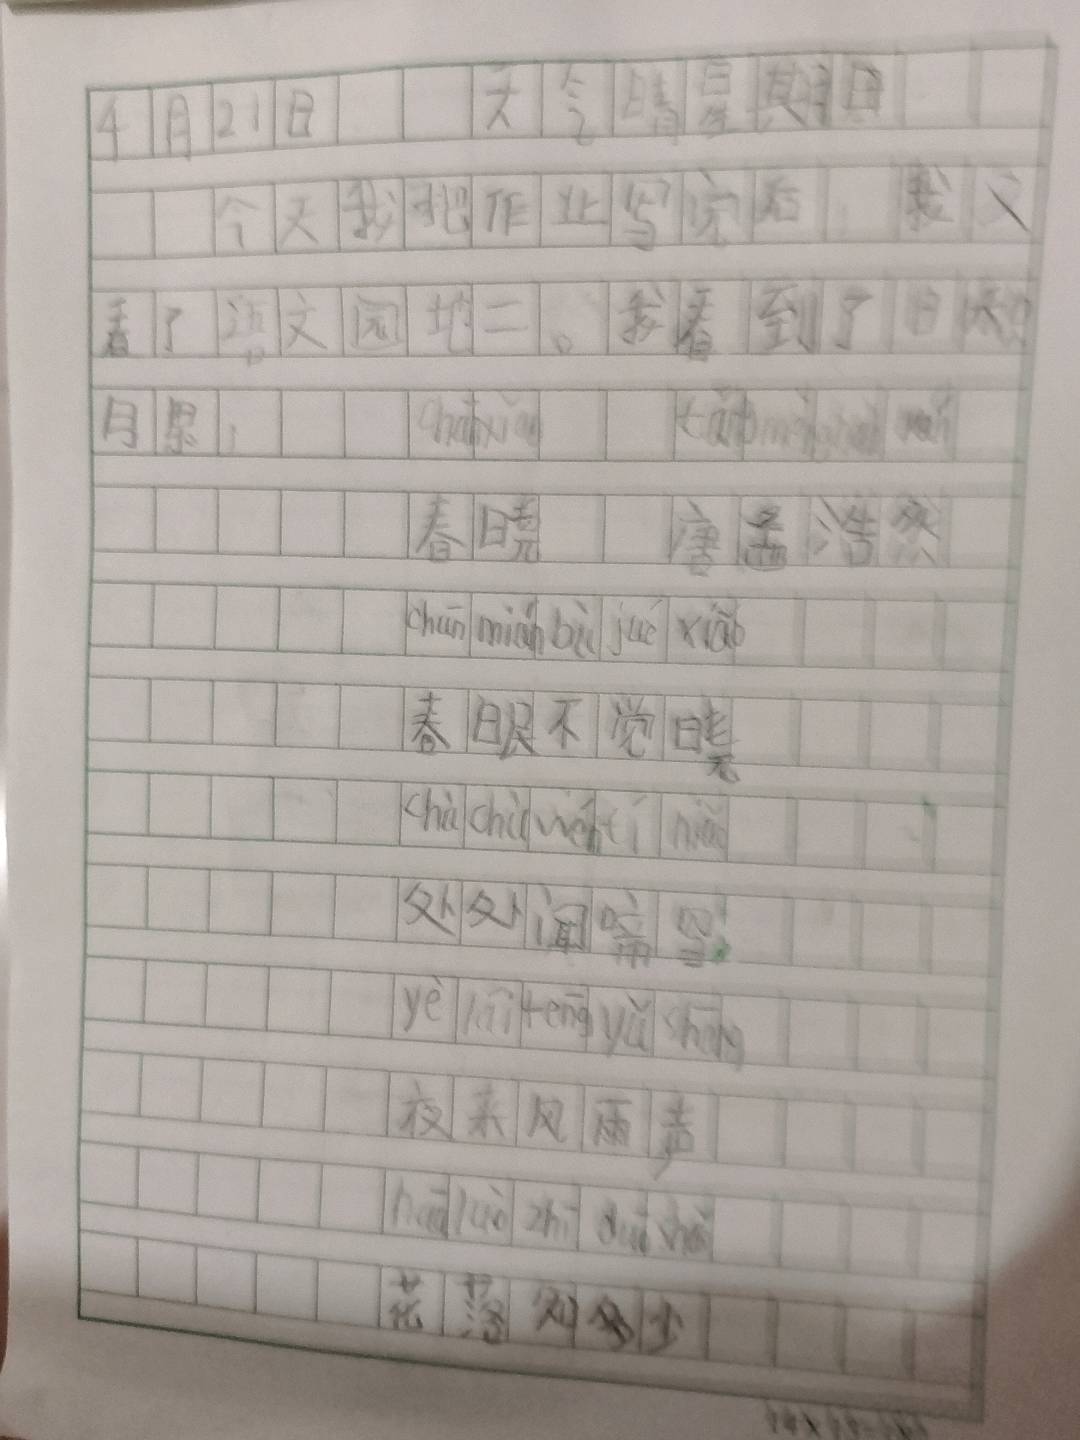 4月21日 天气晴星期日
今天我把作业写完后,我又
看了语文园地二。我看到了日积
月累:
春晓 唐孟浩然
chūn mián bù jué xiǎo
春眠不觉晓
chù chù wén tí niǎo
处处闻啼鸟
yè lái fēng yǔ shēng
夜来风雨声
huā luò zhī duō shǎo
花落知多少